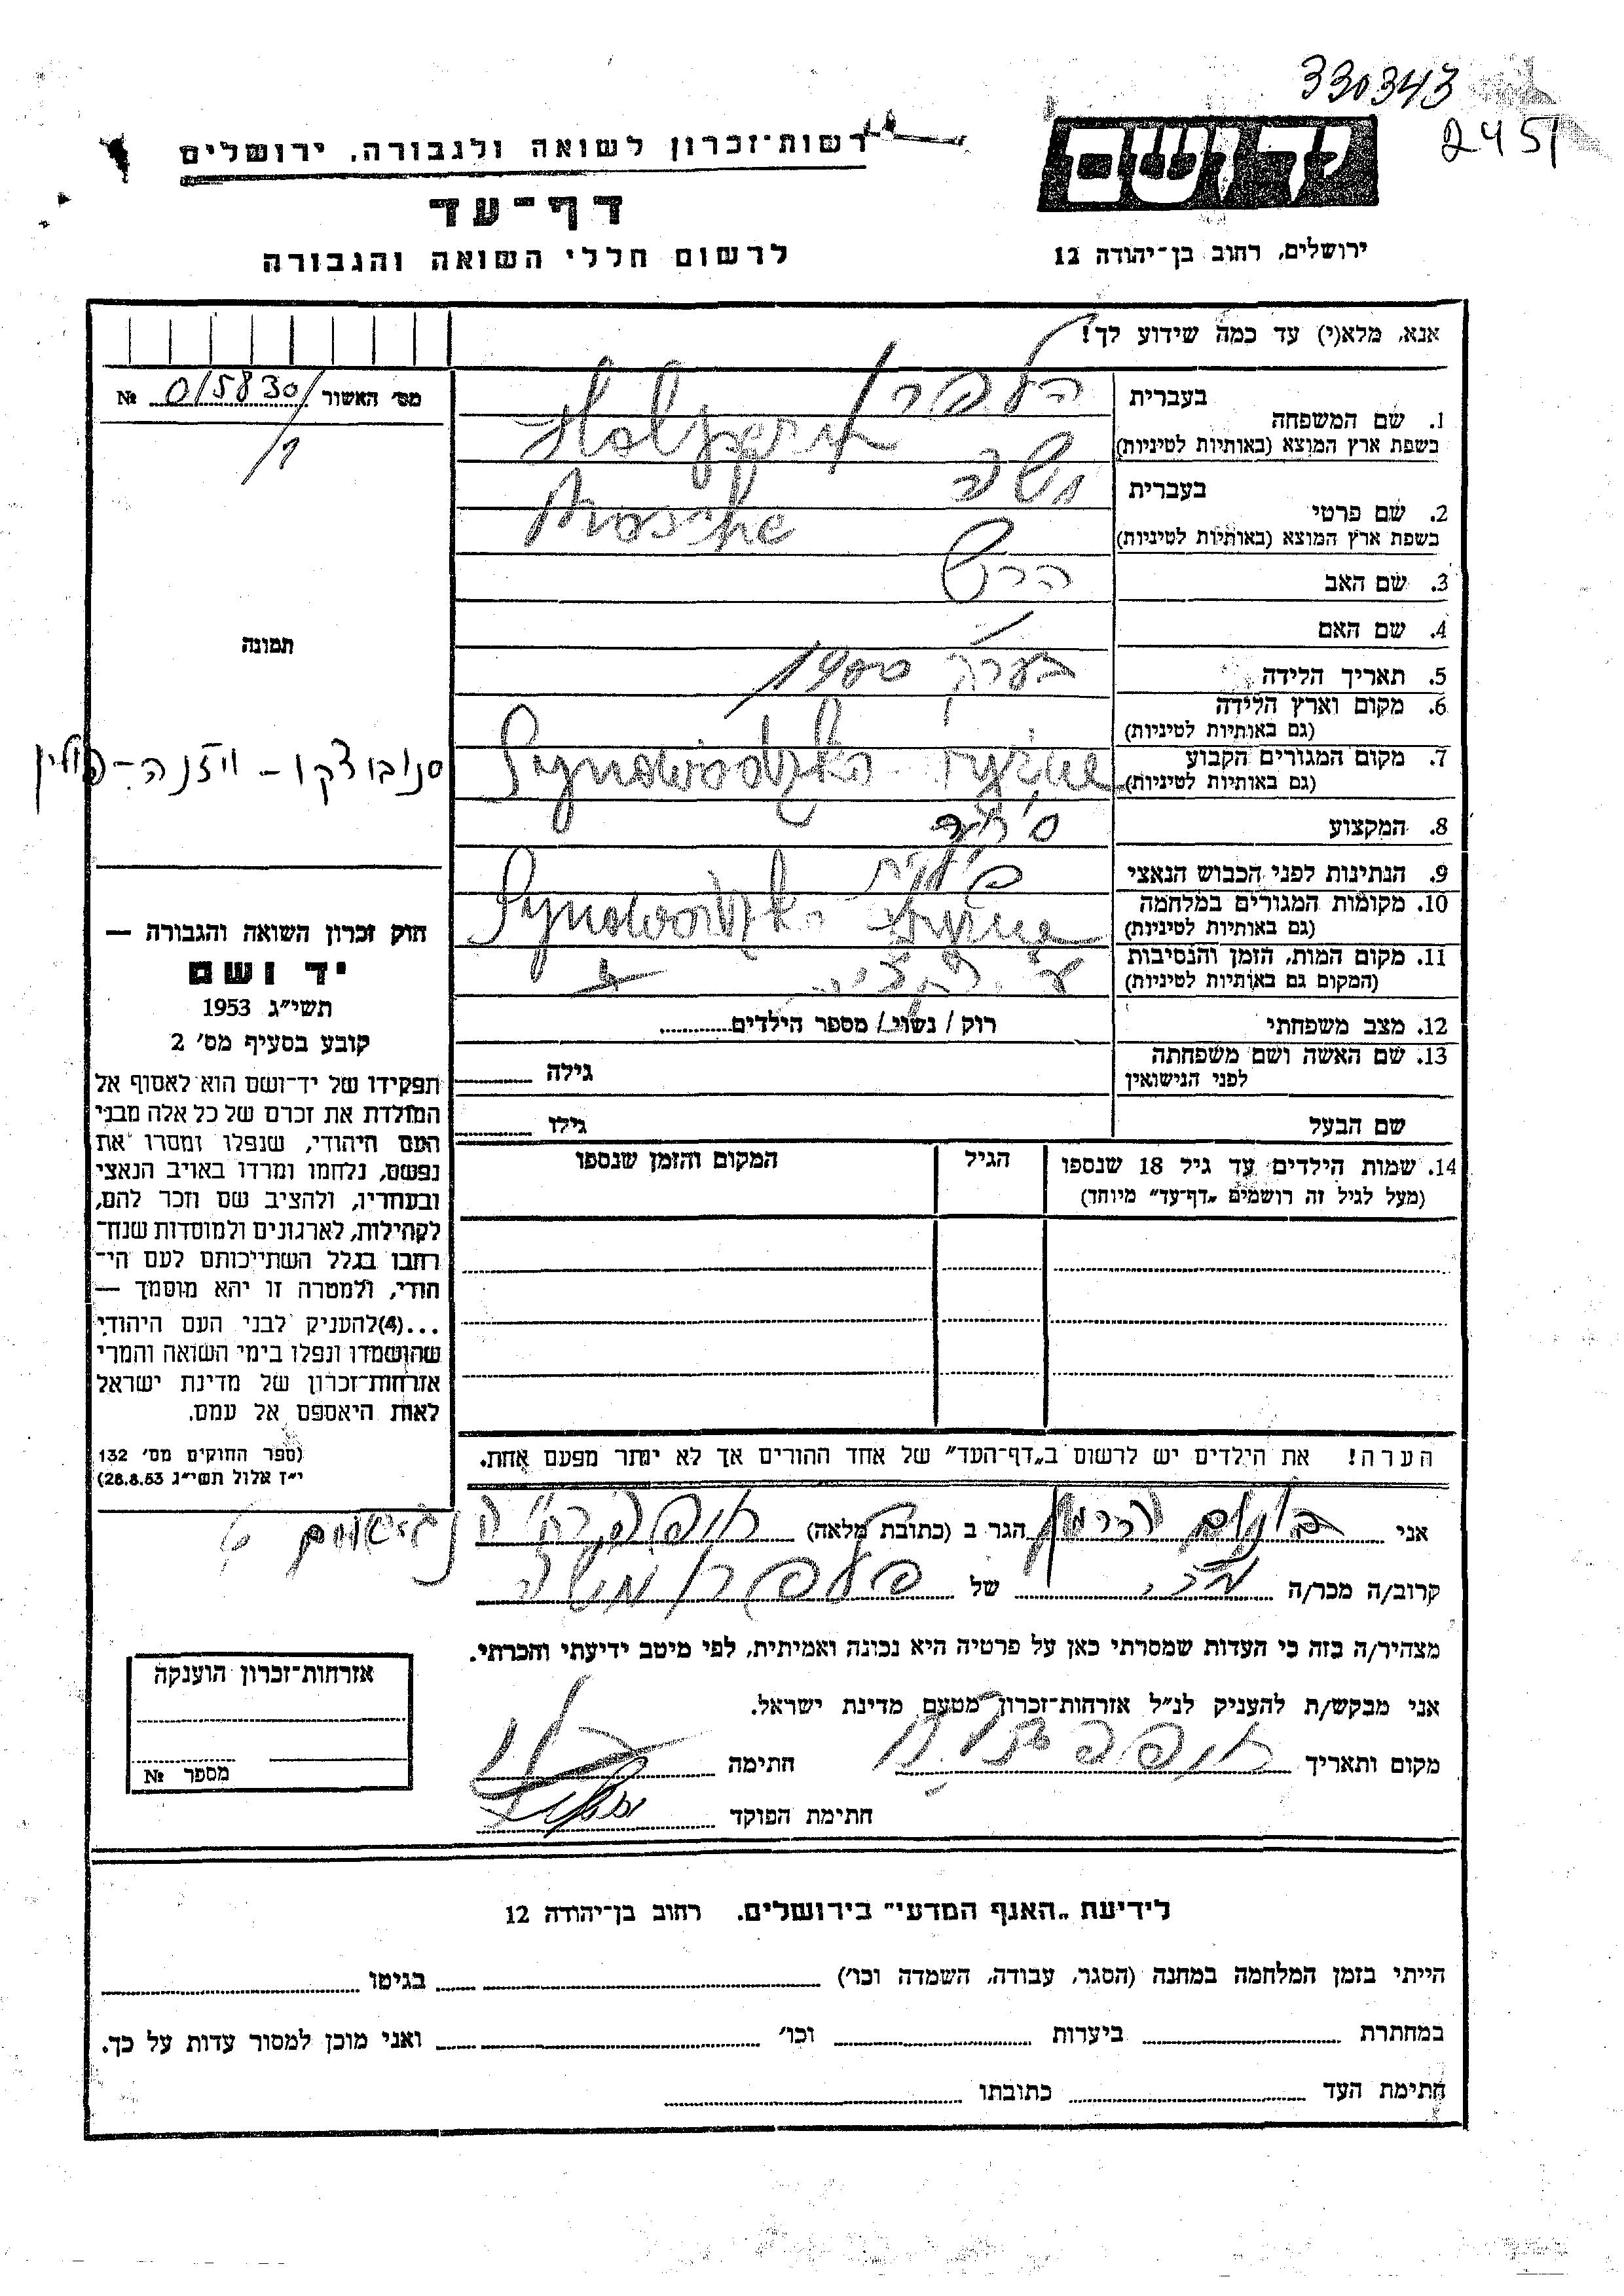 330343
2451
ידושם
ירושלים, רחוב בן־יהודה 12
רשות־זכרון לשואה ולגבורה, ירושלים
דף־עד
לרשום חללי השואה והגבורה
אנא, מלא(י) עד כמה שידוע לך!
1. שם המשפחה
בעברית
בשפת ארץ המוצא (באותיות לטיניות)
Halpern
2. שם פרטי
בעברית משה
בשפת ארץ המוצא (באותיות לטיניות) Mosche
3. שם האב הרש
4. שם האם
5. תאריך הלידה בערך 1900
6. מקום וארץ הלידה
(גם באותיות לטיניות)
7. מקום המגורים הקבוע
(גם באותיות לטיניות)
Synowodzko wyzne
8. המקצוע סוחר
9. הנתינות לפני הכבוש הנאצי פולנית
10. מקומות המגורים במלחמה
(גם באותיות לטיניות)
Synowodzko wyzne
11. מקום המות, הזמן והנסיבות
(המקום גם באותיות לטיניות)
12. מצב משפחתי רוק / נשוי / מספר הילדים
13. שם האשה ושם משפחתה
לפני הנישואין
גילה
שם הבעל גילו
14. שמות הילדים עד גיל 18 שנספו
(מעל לגיל זה רושמים „דף־עד״ מיוחד)
הגיל
המקום והזמן שנספו
הערה! את הילדים יש לרשום ב„דף־העד״ של אחד ההורים אך לא יותר מפעם אחת.
מס׳ האשור № 015830/
תמונה
סנובודצקו - ויזנה - פולין
חוק זכרון השואה והגבורה —
יד ושם
תשי״ג 1953
קובע בסעיף מס׳ 2
תפקידו של יד־ושם הוא לאסוף אל
המולדת את זכרם של כל אלה מבני
העם היהודי, שנפלו ומסרו את
נפשם, נלחמו ומרדו באויב הנאצי
ובעוזריו, ולהציב שם וזכר להם,
לקהילות, לארגונים ולמוסדות שנח־
רחבו בגלל השתייכותם לעם הי־
הודי, ולמטרה זו יהא מוסמך —
...(4)להעניק לבני העם היהודי
שהושמדו ונפלו בימי השואה והמרי
אזרחות־זכרון של מדינת ישראל
לאות היאספם אל עמם.
(ספר החוקים מס׳ 132
י״ז אלול תשי״ג 28.8.53)
אני הגר ב (כתובת מלאה)
קרוב/ה מכר/ה של משה
מצהיר/ה בזה כי העדות שמסרתי כאן על פרטיה היא נכונה ואמיתית, לפי מיטב ידיעתי והכרתי.
אני מבקש/ת להעניק לנ״ל אזרחות־זכרון מטעם מדינת ישראל.
מקום ותאריך חתימה
חתימת הפוקד
אזרחות־זכרון הוענקה
מספר №
לידיעת „האגף המדעי״ בירושלים. רחוב בן־יהודה 12
הייתי בזמן המלחמה במחנה (הסגר, עבודה, השמדה וכו׳) בגיטו
במחתרת ביערות וכו׳ ואני מוכן למסור עדות על כך.
חתימת העד כתובתו